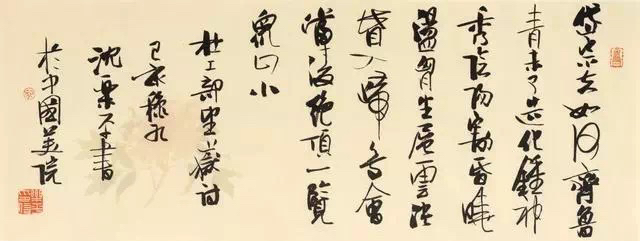 岱宗夫如何齊魯
青未了造化鍾神
秀陰陽割昏曉
盪胷生層雲決
眥入歸鳥會
當凌絕頂一覽
衆山小
杜工部望嶽詩
己亥穐
沈樂平書
於中國美院